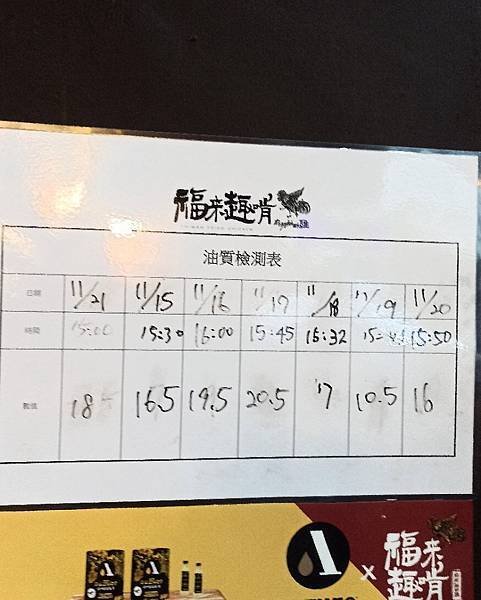 福来趣啃
油質檢測表
日期 11/21 11/15 11/16 11/17 11/18 11/19 11/20
時間 15:00 15:30 16:00 15:45 15:32 15:50
數值 18 16.5 19.5 20.5 17 10.5 16
X
福来
趣啃